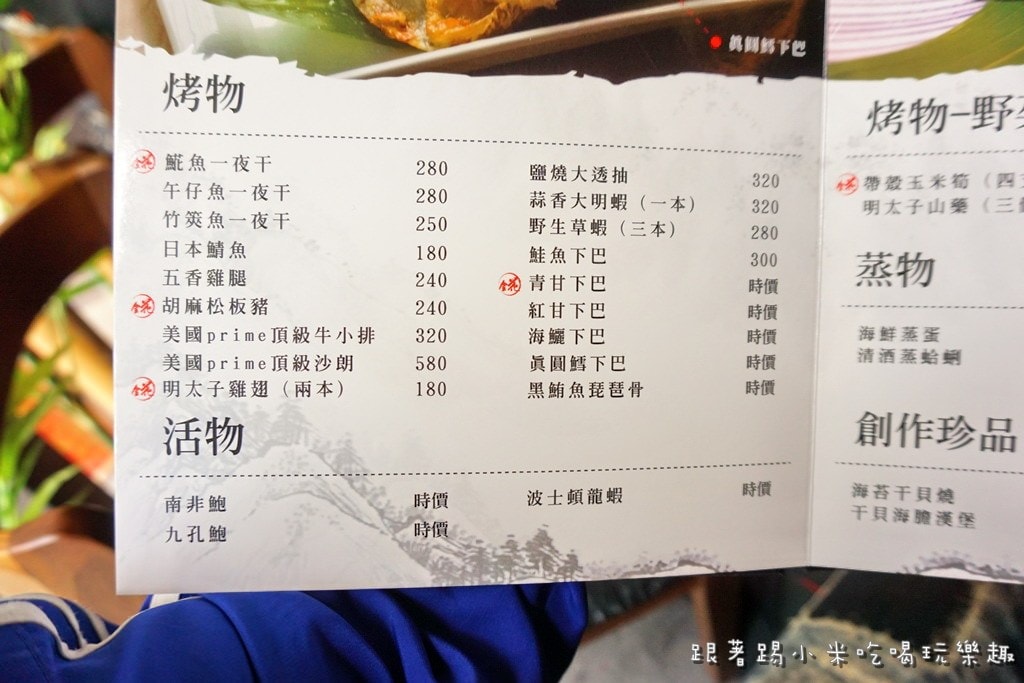 眞圓鱈下巴
烤物
鯱魚一夜干 280
午仔魚一夜干 280
竹筴魚一夜干 250
日本鯖魚 180
五香雞腿 240
胡麻松板豬 240
美國prime頂級牛小排 320
美國prime頂級沙朗 580
明太子雞翅（兩本） 180
鹽燒大透抽 320
蒜香大明蝦（一本） 320
野生草蝦（三本） 280
鮭魚下巴 300
青甘下巴 時價
紅甘下巴 時價
海鱺下巴 時價
眞圓鱈下巴 時價
黑鮪魚琵琶骨 時價
活物
南非鮑 時價
九孔鮑 時價
波士頓龍蝦 時價
烤物-野
帶殼玉米筍（四
明太子山藥（三
蒸物
海鮮蒸蛋
清酒蒸蛤蜊
創作珍品
海苔干貝燒
干貝海膽漢堡
跟著踢小米吃喝玩樂趣